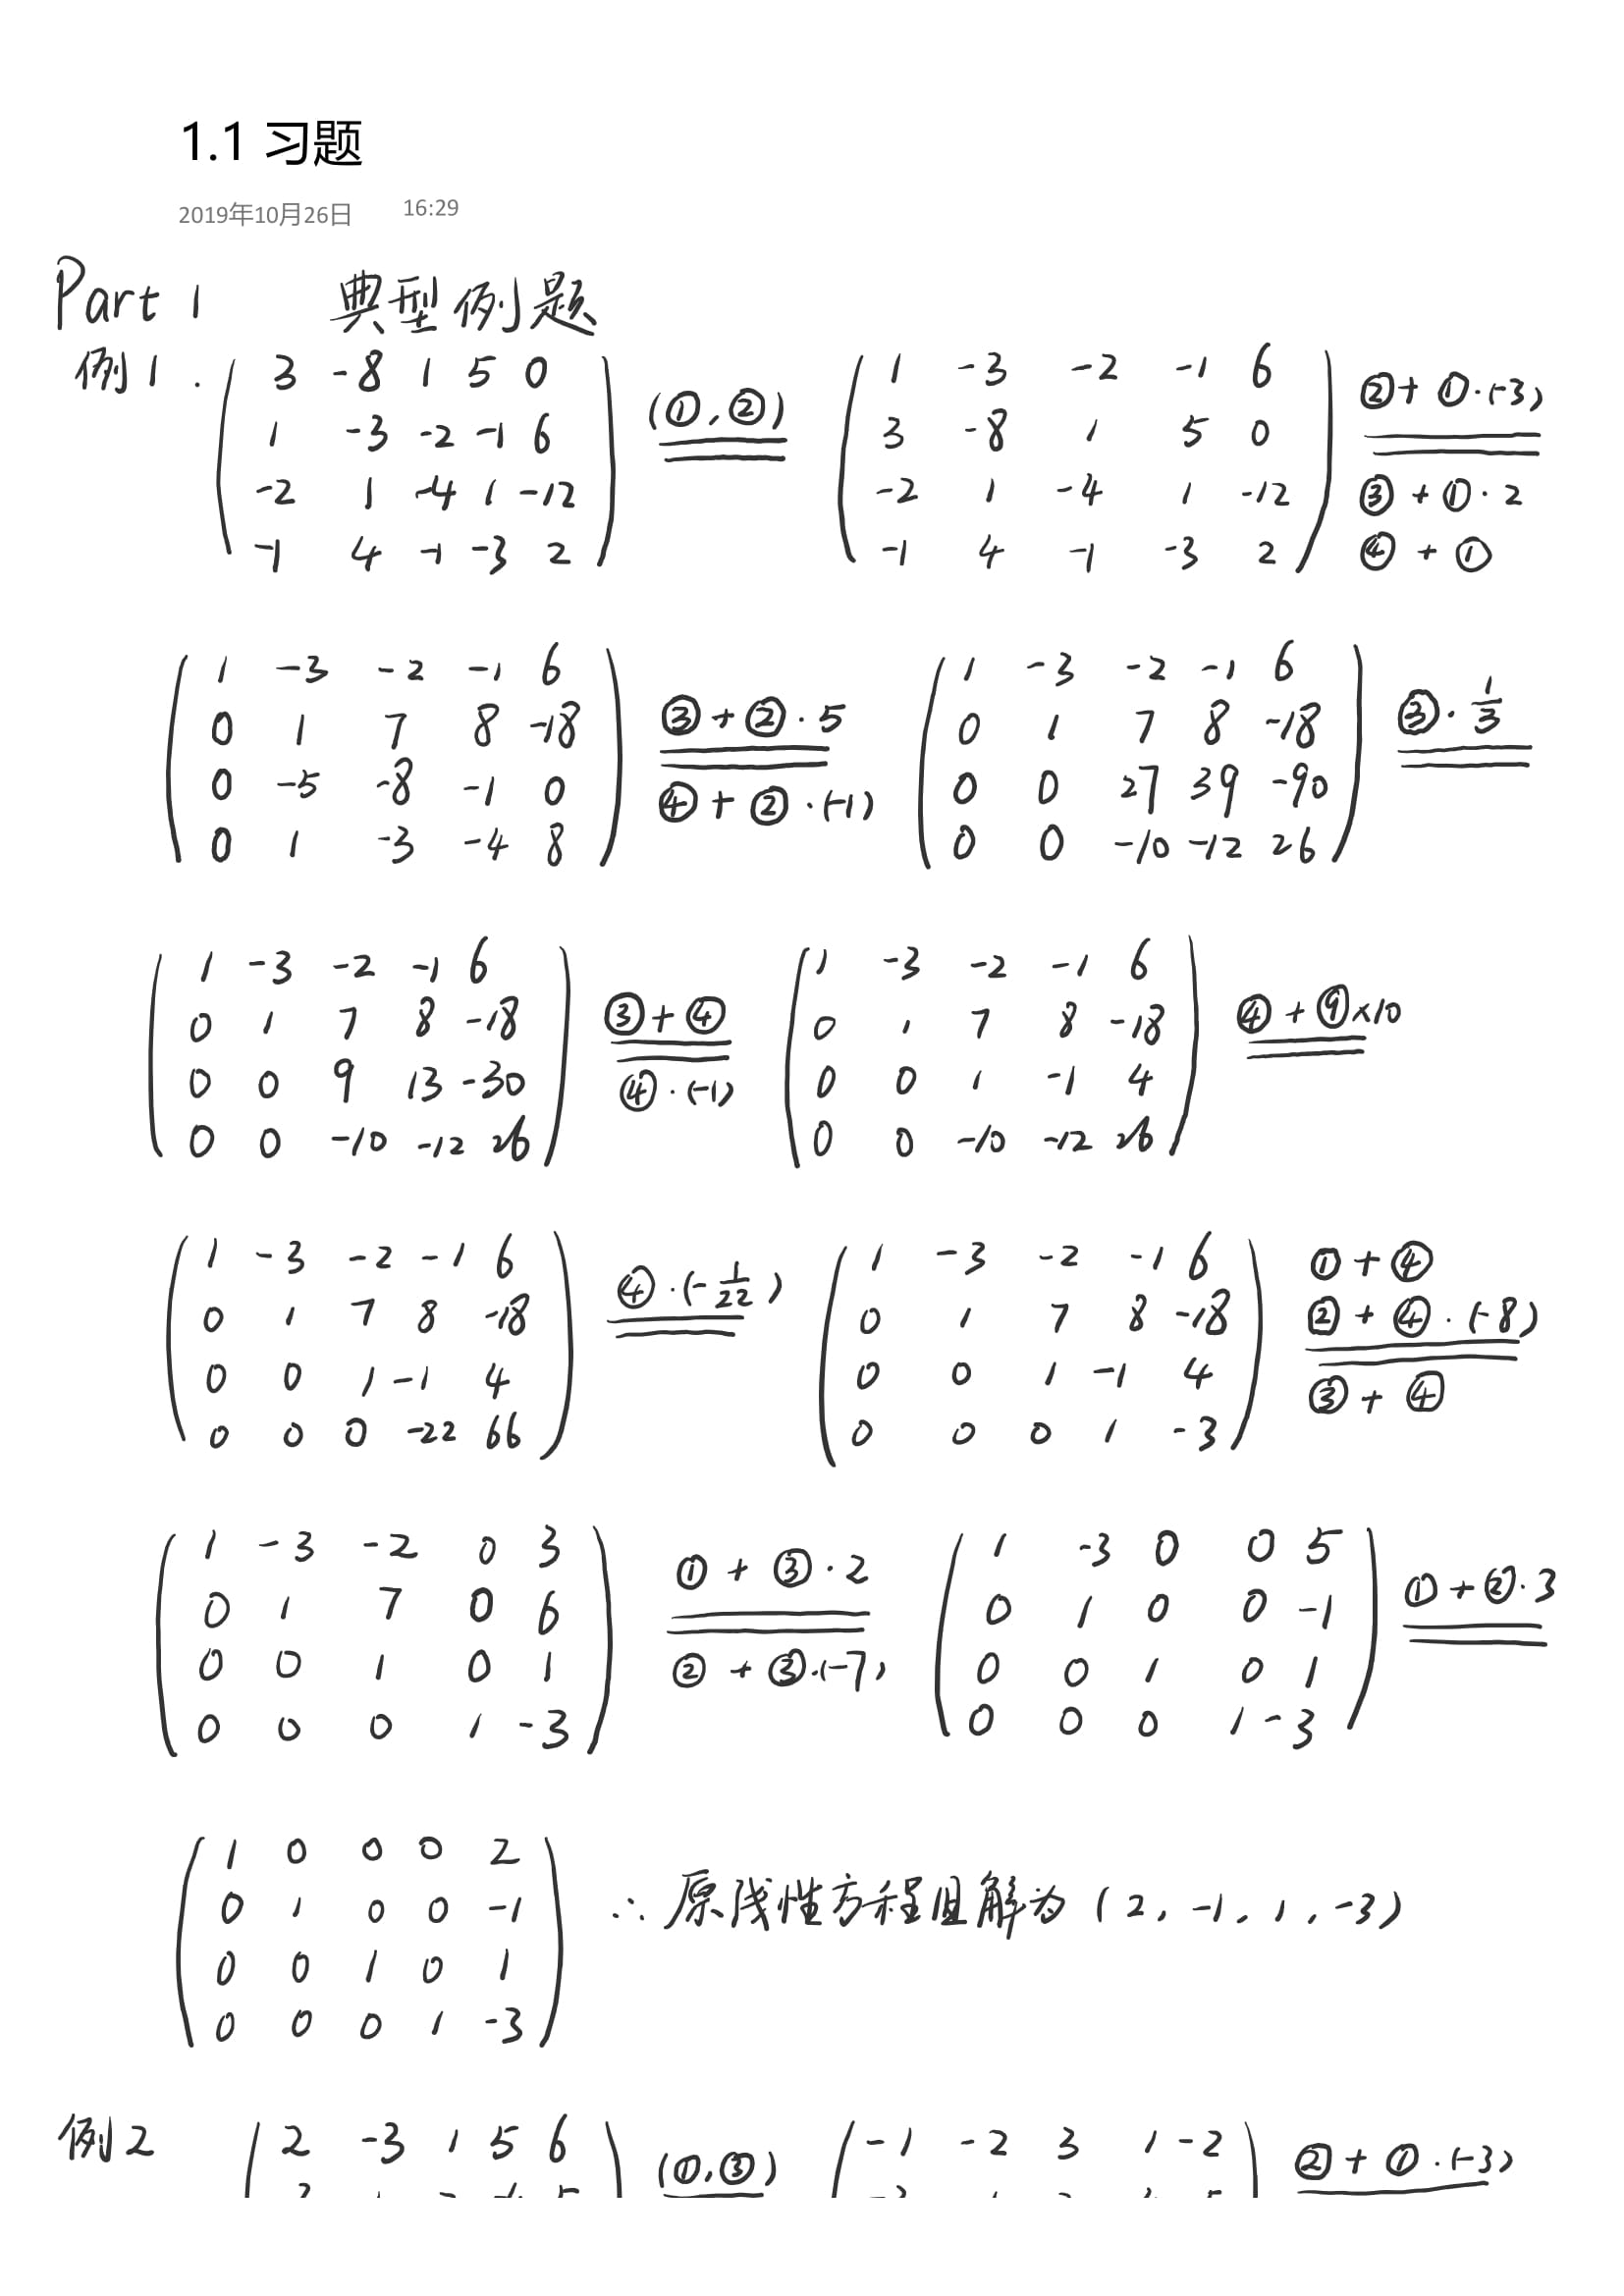 1.1 习题
2019年10月26日 16:29
Part 1 典型例题
例1.
3 -8 1 5 0
1 -3 -2 -1 6
-2 1 -4 1 -12
-1 4 -1 -3 2
(①,②)
1 -3 -2 -1 6
3 -8 1 5 0
-2 1 -4 1 -12
-1 4 -1 -3 2
②+①·(-3)
③+①·2
④+①
1 -3 -2 -1 6
0 1 7 8 -18
0 -5 -8 -1 0
0 1 -3 -4 8
③+②·5
④+②·(-1)
1 -3 -2 -1 6
0 1 7 8 -18
0 0 27 39 -90
0 0 -10 -12 26
③·1/3
1 -3 -2 -1 6
0 1 7 8 -18
0 0 9 13 -30
0 0 -10 -12 26
③+④
④·(-1)
1 -3 -2 -1 6
0 1 7 8 -18
0 0 1 -1 4
0 0 -10 -12 26
④+⑨×10
1 -3 -2 -1 6
0 1 7 8 -18
0 0 1 -1 4
0 0 0 -22 66
④·(-1/22)
1 -3 -2 -1 6
0 1 7 8 -18
0 0 1 -1 4
0 0 0 1 -3
①+④
②+④·(-8)
③+④
1 -3 -2 0 3
0 1 7 0 6
0 0 1 0 1
0 0 0 1 -3
①+③·2
②+③·(-7)
1 -3 0 0 5
0 1 0 0 -1
0 0 1 0 1
0 0 0 1 -3
①+②·3
1 0 0 0 2
0 1 0 0 -1
0 0 1 0 1
0 0 0 1 -3
∴原线性方程组解为(2,-1,1,-3)
例2
2 -3 1 5 6
(①,③)
-1 -2 3 1 -2
②+①·(-3)